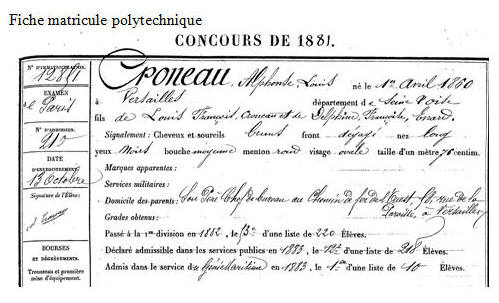 Fiche matricule polytechnique
CONCOURS DE 1881.
N° D'IMMATRICULATION.
12861
EXAMEN
de Paris
N° D'ADMISSION.
215
DATE
D'ENREGISTREMENT.
13 Octobre
Signature de l'Élève:
BOURSES
ET DÉGRÈVEMENTS.
Trousseau et première
mise d'équipement.
CRONEAU, Alphonse Louis né le 1er Avril 1860
à Versailles département de Seine Oise
fils de Louis François Croneau et de Delphine, Françoise, Evrard.
Signalement: Cheveux et sourcils bruns front dégagé nez long
yeux noirs bouche moyenne menton rond visage ovale taille d'un mètre 76 centim.
Marques apparentes:
Services militaires:
Domicile des parents: Son Père Chef de bureau au Chemin de fer de l'Ouest, 58, rue de la
Paroisse, à Versailles
Grades obtenus:
Passé à la 1re division en 1882, le d'une liste de 220 Élèves.
Déclaré admissible dans les services publics en 1883 le d'une liste de 218 Élèves.
Admis dans le service du Génie Maritime en 1883, le 1er d'une liste de 10 Élèves.